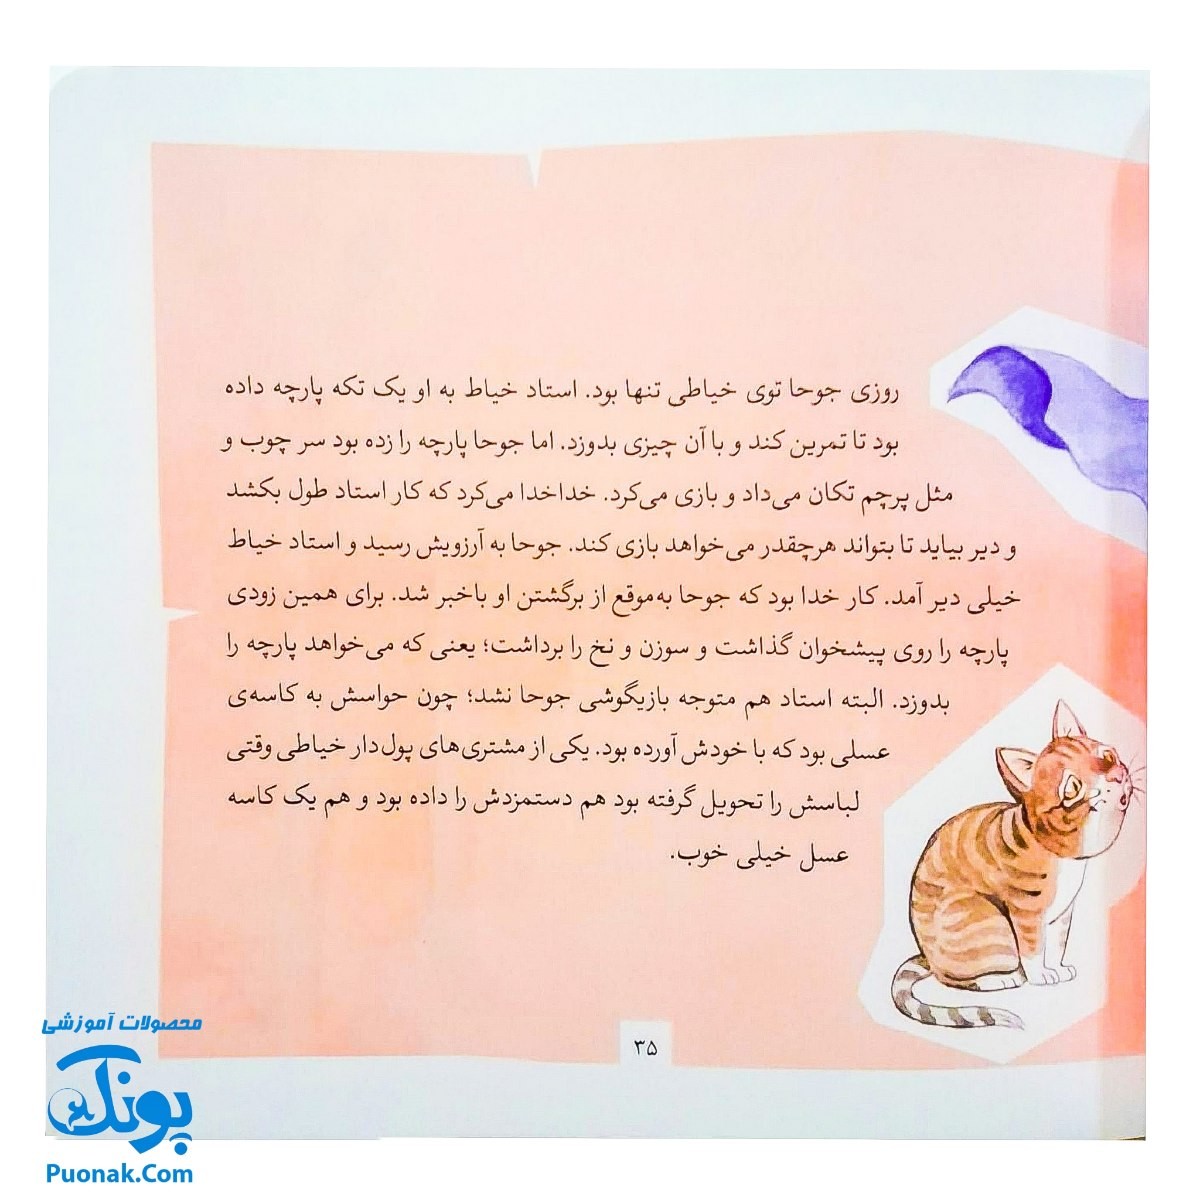 روزی جوحا توی خیاطی تنها بود. استاد خیاط به او یک تکه پارچه داده
بود تا تمرین کند و با آن چیزی بدوزد. اما جوحا پارچه را زده بود سر چوب و
مثل پرچم تکان می‌داد و بازی می‌کرد. خداخدا می‌کرد که کار استاد طول بکشد
و دیر بیاید تا بتواند هرچقدر می‌خواهد بازی کند. جوحا به آرزویش رسید و استاد خیاط
خیلی دیر آمد. کار خدا بود که جوحا به‌موقع از برگشتن او باخبر شد. برای همین زودی
پارچه را روی پیشخوان گذاشت و سوزن و نخ را برداشت؛ یعنی که می‌خواهد پارچه را
بدوزد. البته استاد هم متوجه بازیگوشی جوحا نشد؛ چون حواسش به کاسه‌ی
عسلی بود که با خودش آورده بود. یکی از مشتری‌های پول‌دار خیاطی وقتی
لباسش را تحویل گرفته بود هم دستمزدش را داده بود و هم یک کاسه
عسل خیلی خوب.
۳۵
محصولات آموزشی
پونک
Puonak.Com